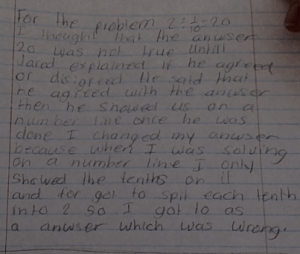 For the problem 2÷1/10=20
I thought that the anwser
20 was not true untill
Jard explained if he agreed
or disigreed He said that
he agreed with the anwser
then he showed us on a
number line once he was
done I changed my anwser
because when I was solving
on a number line I only
showed the tenths on it
and for got to spit each tenth
into 2 so I got 10 as
a anwser which was wrong.